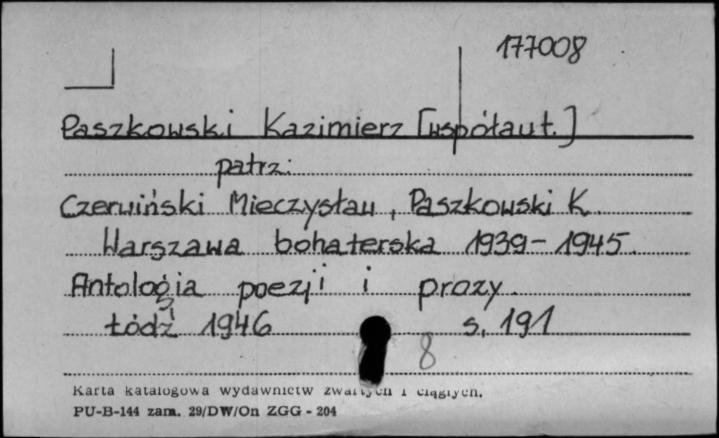 177008
Paszkowski Kazimierz [współaut.]
patrz:
Czerwiński Mieczysław, Paszkowski K.
Warszawa bohaterska 1939-1945.
Antologia poezji i prozy.
Łódź 1946 s. 191
8
Karta katalogowa wydawnictw zwartych i ciągłych.
PU-B-144 zam. 29/DW/On ZGG - 204